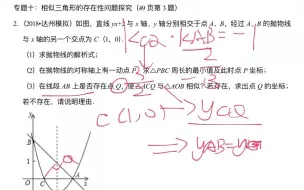 专题十:相似三角形的存在性问题探究(49页第3题)
2.(2018•达州模拟)如图,直线y=x+2与x轴、y轴分别相交于点A、B,经过A、B的抛物线
与x轴的另一个交点为C(1,0).
(1)求抛物线的解析式;
(2)在抛物线的对称轴上有一动点P,求△PBC周长的最小值及此时点P坐标;
(3)在线段AB上是否存在点Q,使△ACQ与△AOB相似?若存在,求出点Q的坐标;
若不存在,请说明理由.
KCQ · KAB = -1
C(1,0)
yCQ
⇒ yAB=y